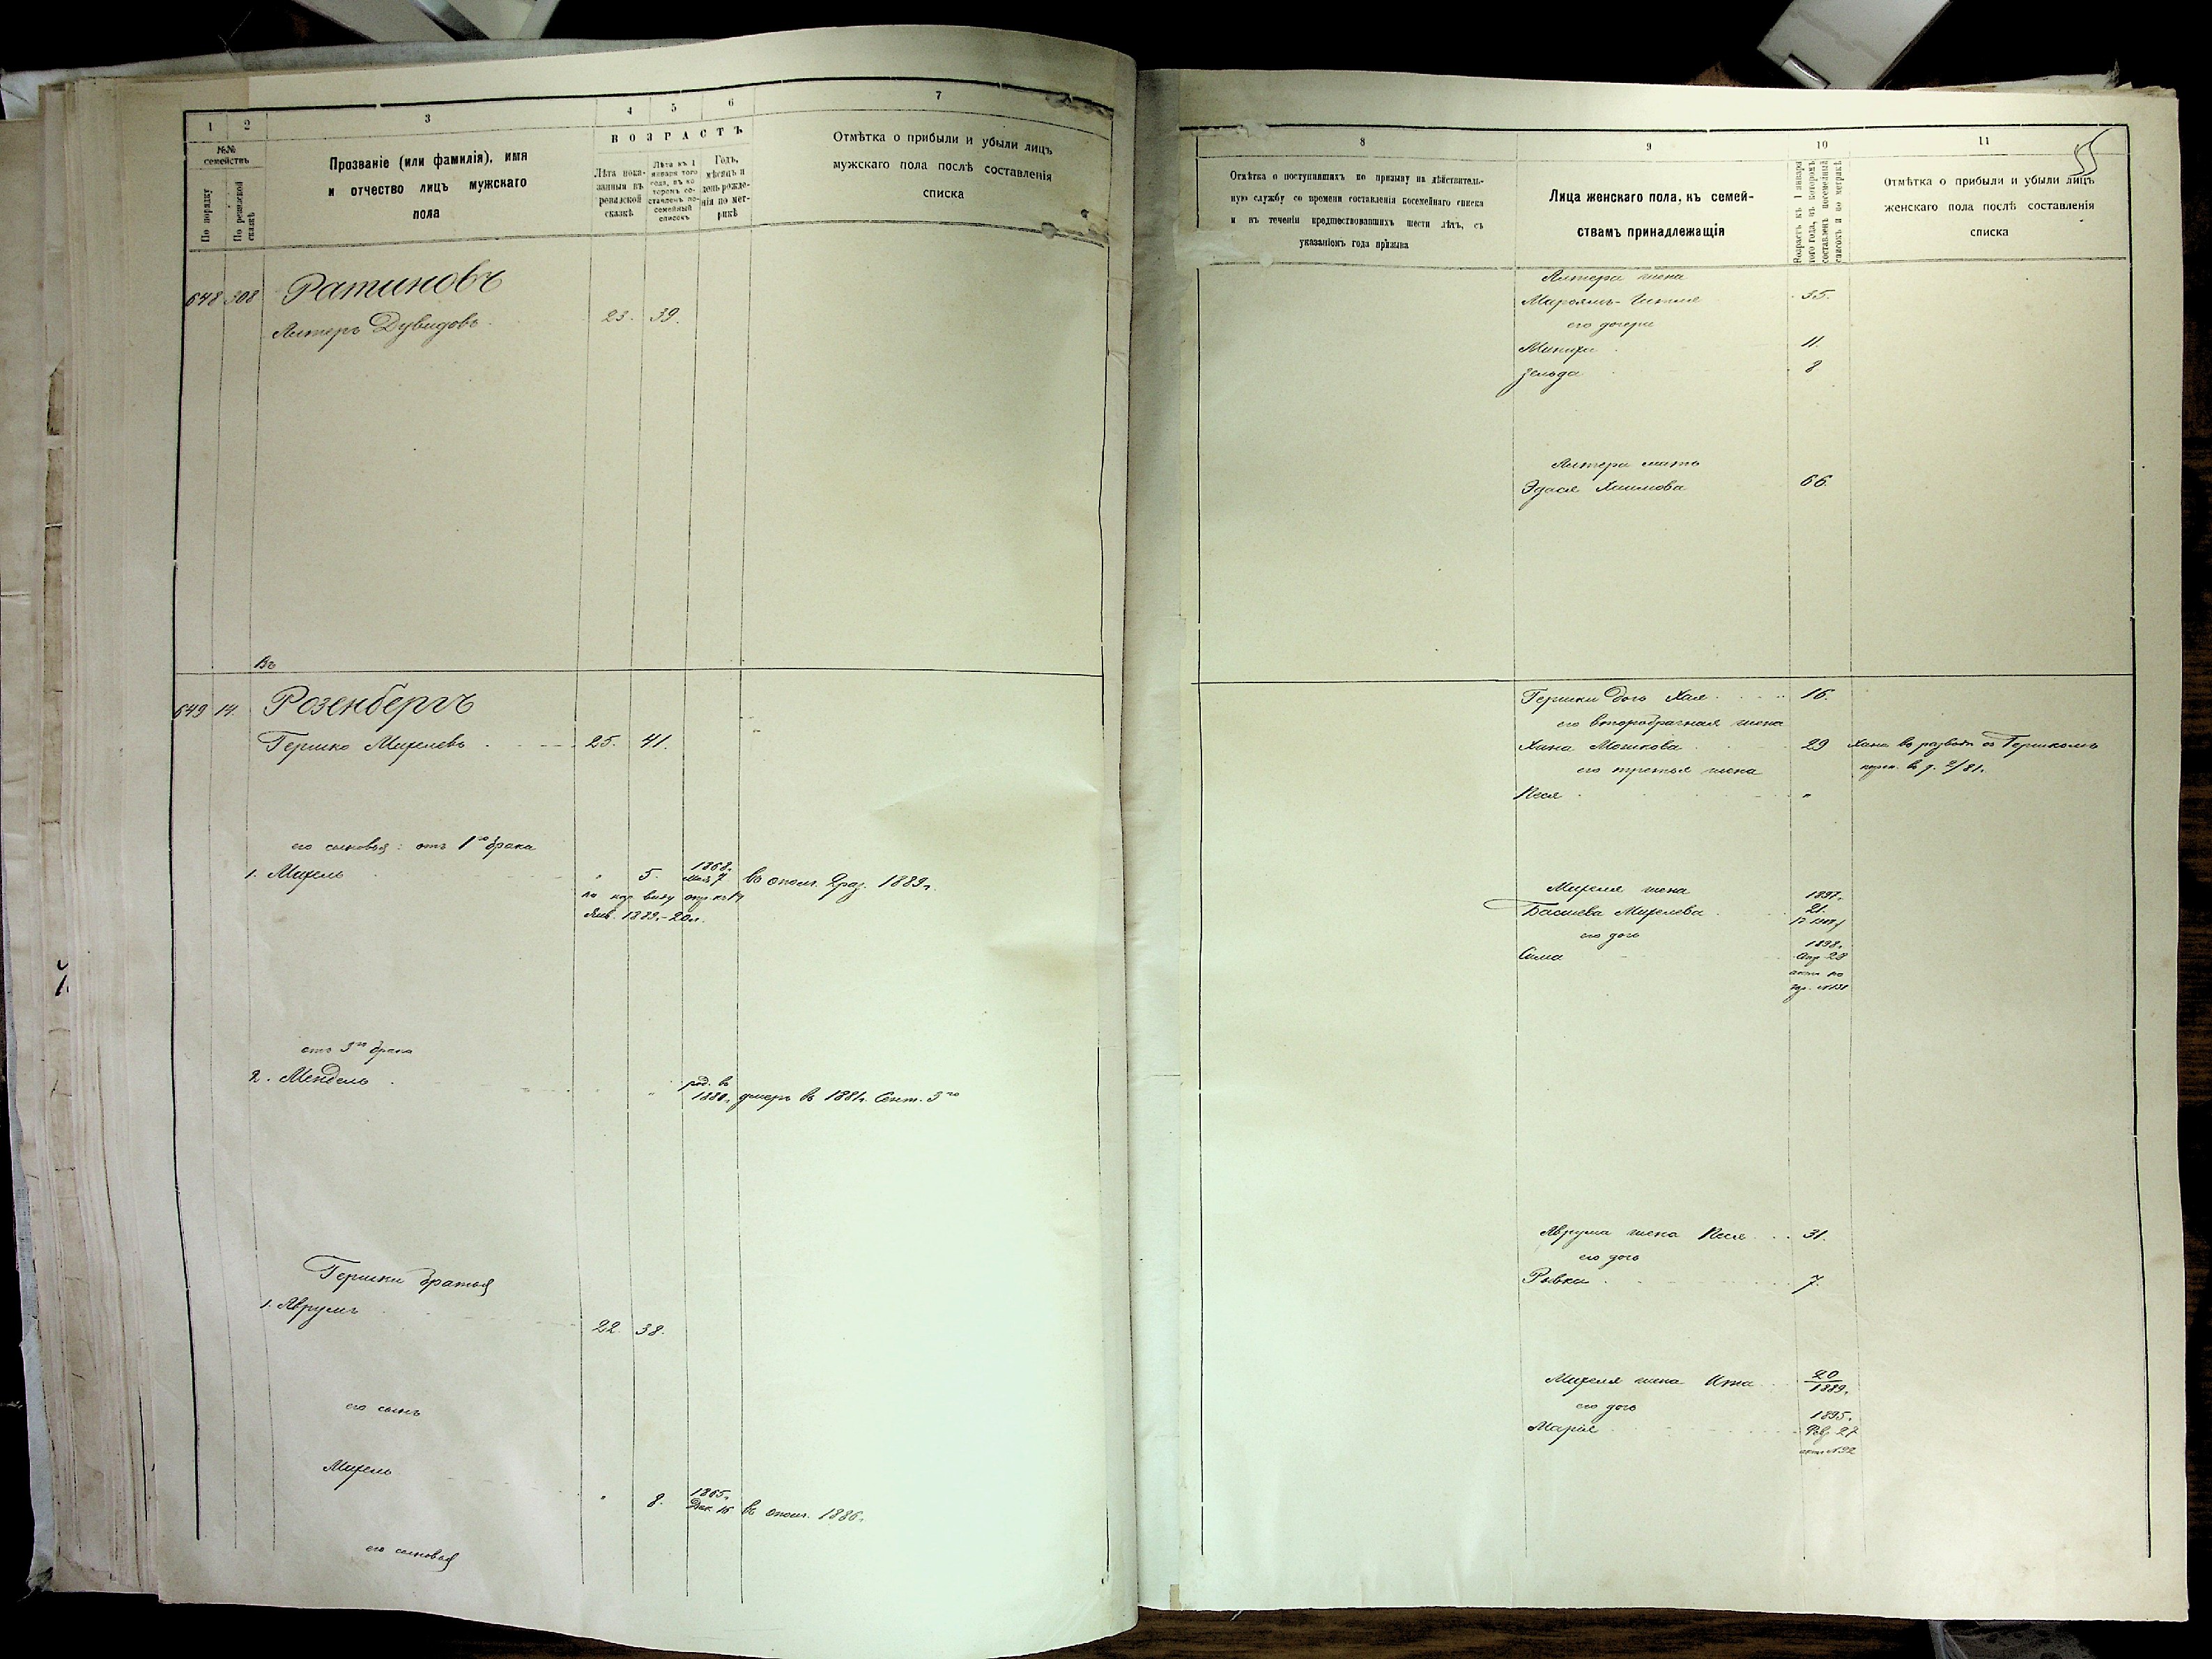 1
2
3
4
5
6
7
№№ семействъ
По порядку
По ревизской сказкѣ
Прозваніе (или фамилія), имя
и отчество лицъ мужскаго
пола
ВОЗРАСТЪ
Лѣта пока-
занныя въ
ревизской
сказкѣ
Лѣта къ 1
января того
года, въ ко
торомъ со-
ставленъ по-
семейный
списокъ
Годъ,
мѣсяцъ и
день рожде-
нія по мет-
рикѣ
Отмѣтка о прибыли и убыли лицъ
мужскаго пола послѣ составленія
списка
648 308 Ратиновъ
Алтеръ Дувидовъ 23. 39.
Въ
649 14. Розенбергъ
Гершко Михелевъ 25. 41.
его сыновья: отъ 1го брака
1. Михель " 5. 1868г. Мая 7 въ ополч. 2 раз. 1889г.
по нар. виду опр. къ 1
Янв. 1889г.-20л.
отъ 3го брака
2. Мендель " род. въ
1880г. умеръ въ 1881г. Сент. 3го
Гершки братья
1. Аврумъ 22. 38.
его сынъ
Михель " 8. 1865г. Дек. 15 въ ополч. 1886г.
его сыновья
8
9
10
11
55
Отмѣтка о поступившихъ по призыву на дѣйствитель-
ную службу со времени составленія посемейнаго списка
и въ теченіи предшествовавшихъ шести лѣтъ, съ
указаніемъ года призыва
Лица женскаго пола, къ семей-
ствамъ принадлежащія
Возрастъ къ 1 января
того года, въ которомъ
составленъ посемейный
списокъ и по метрикѣ
Отмѣтка о прибыли и убыли лицъ
женскаго пола послѣ составленія
списка
Алтера жена
Марьямъ- 35.
его дочери
11.
Зельда 8
Алтера мать
Эдася Хаимова 66.
Гершки дочь Хая 16.
его второбрачная жена
Хана Мошкова 29 Хана въ разводѣ съ Гершкомъ
его третья жена
Песя "
Михеля жена 1897г.
Басшева Михелева 21.
его дочь
1898г.
Сима Апр. 28
Аврума жена Песя 31.
его дочь
Рывка 7.
Михеля жена Ита 20
1889г.
его дочь
1895г.
Марія Фев. 27
акт. №32